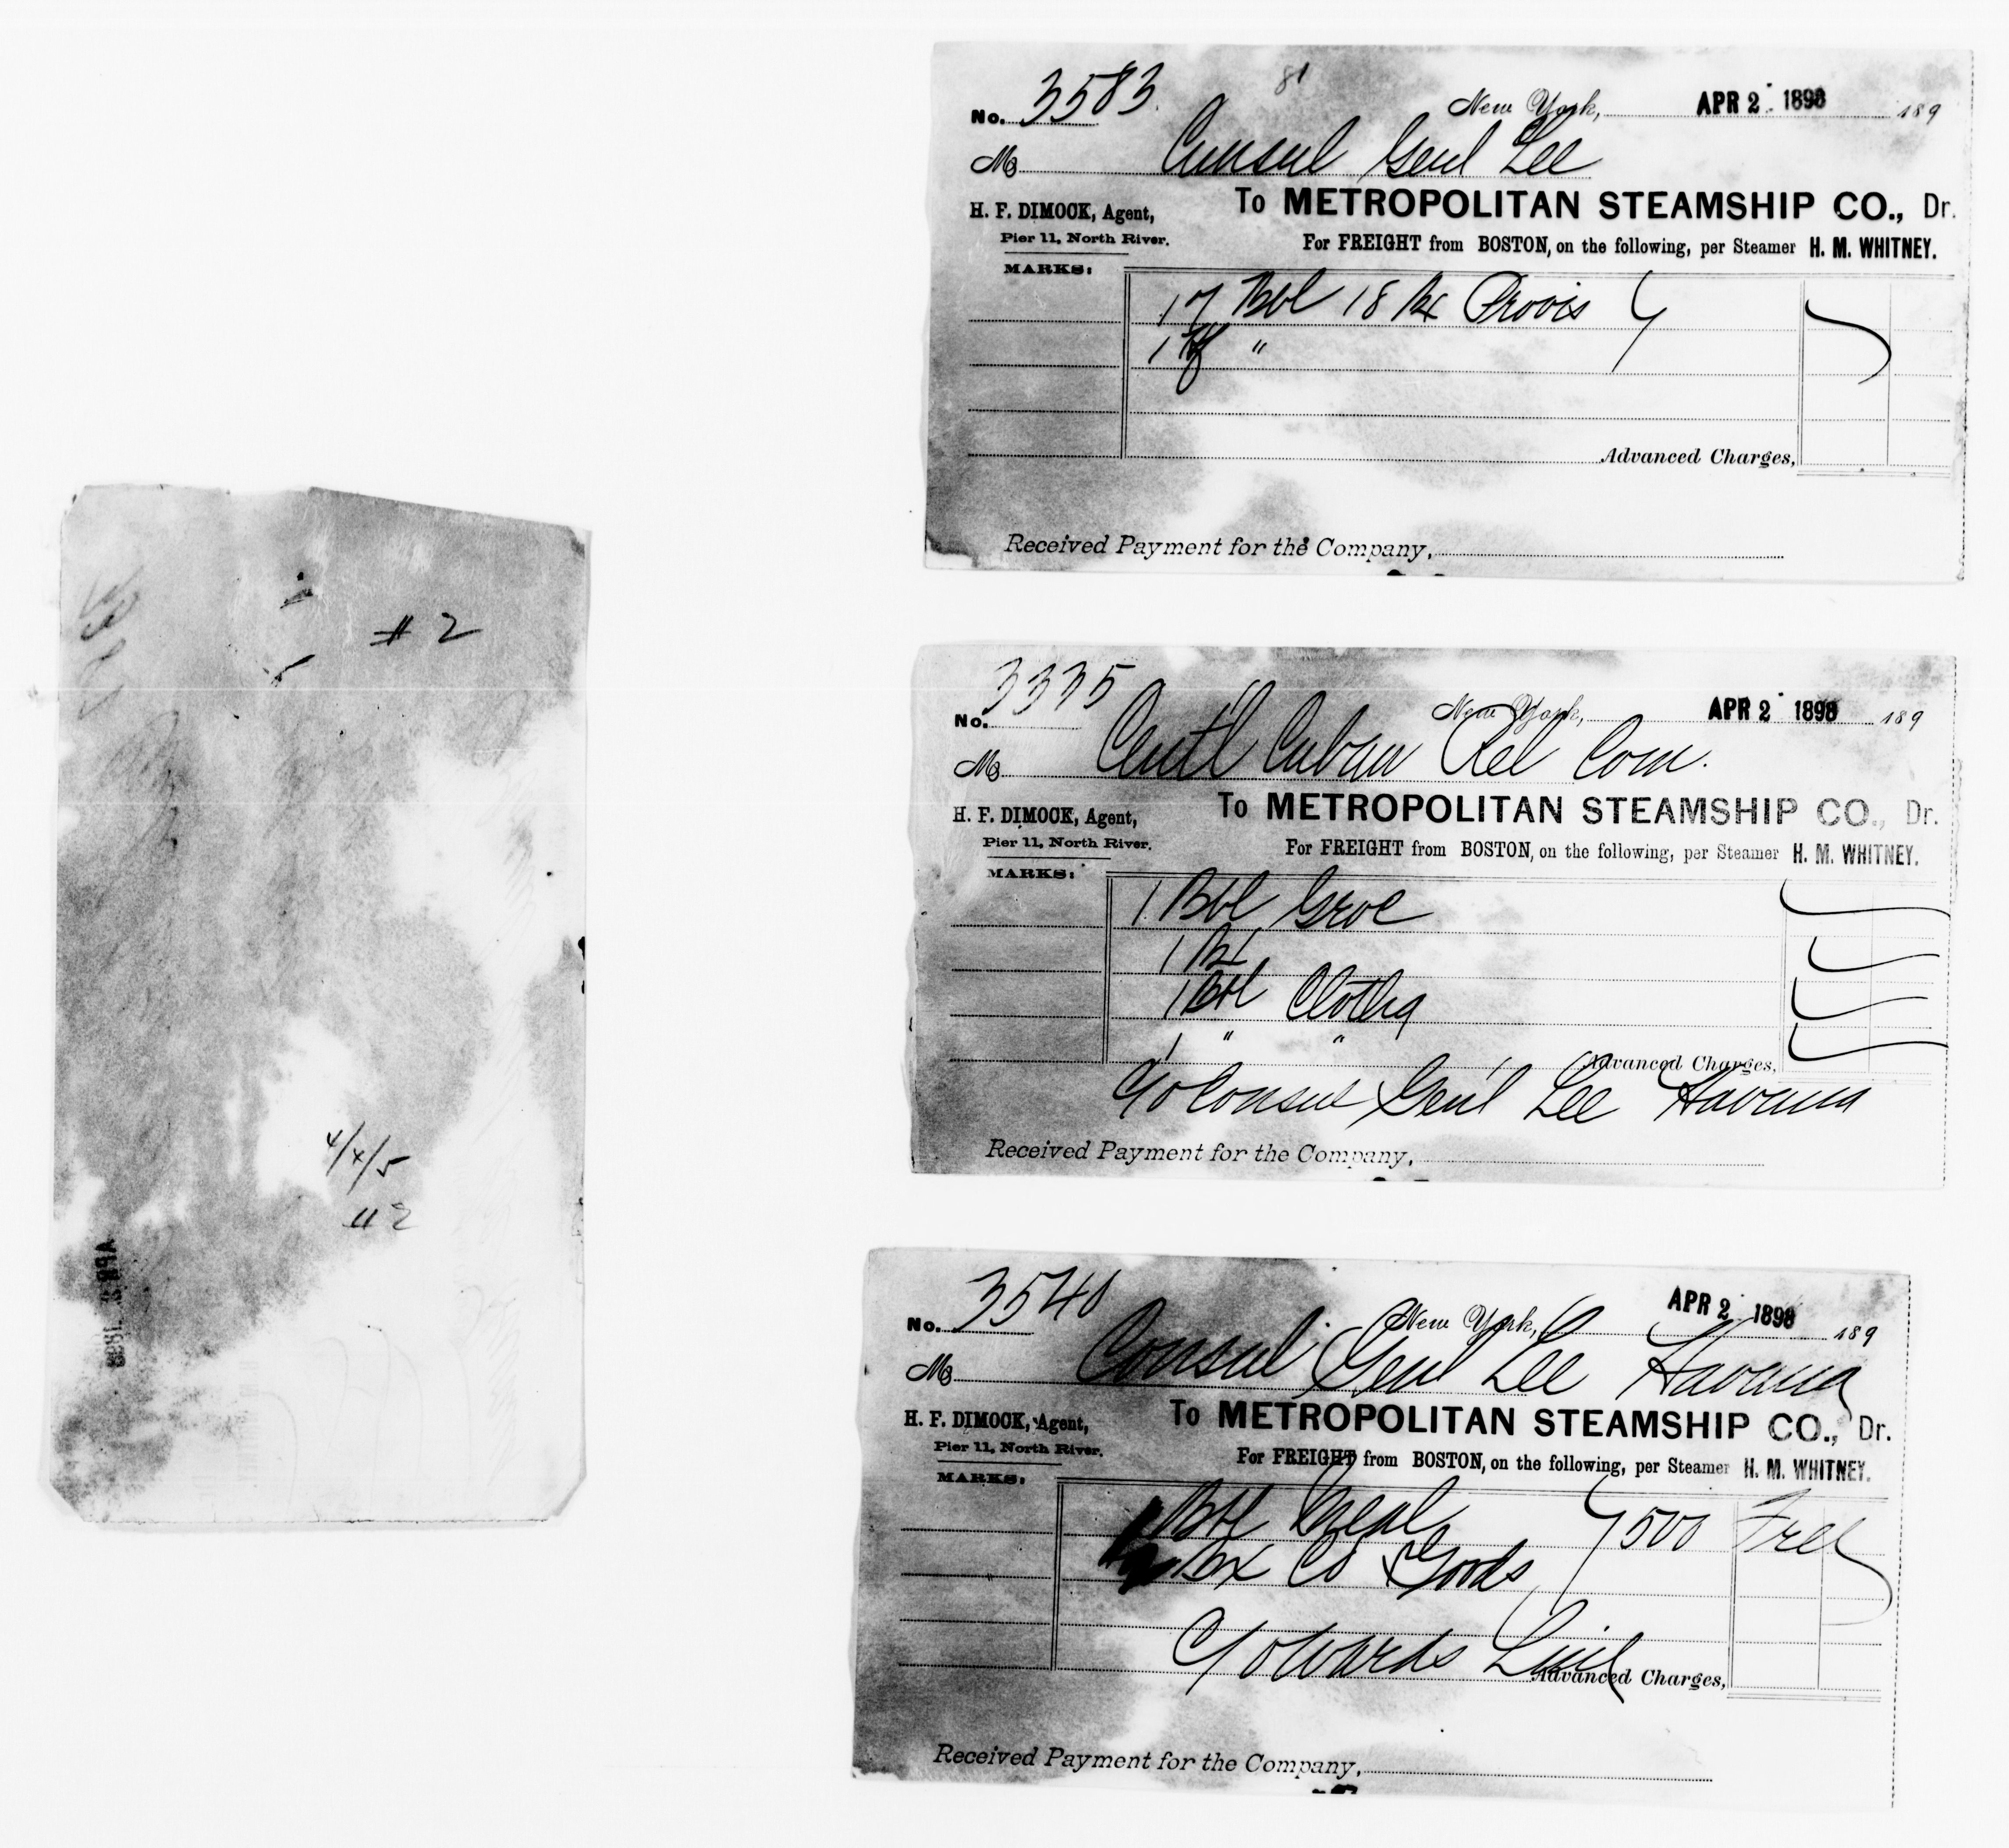 # 2
4/4/5
# 2
81
No. 3583.
New York, APR 2 1898 189
M Consul Genl Lee
To METROPOLITAN STEAMSHIP CO., Dr.
H. F. DIMOCK, Agent,
Pier 11, North River.
For FREIGHT from BOSTON, on the following, per Steamer H. M. WHITNEY.
MARKS:
17 Bbl 18 Bx Provis
1 Hf "
Advanced Charges,
Received Payment for the Company,
No. 3335
New York, APR 2 1898 189
M Centl Cuban Rel Com.
To METROPOLITAN STEAMSHIP CO., Dr.
H. F. DIMOCK, Agent,
Pier 11, North River.
For FREIGHT from BOSTON, on the following, per Steamer H. M. WHITNEY.
MARKS:
1 Bbl Groc
1 Bx
1 Bbl Clothg
1 " "
Advanced Charges,
C/o Consul Gen'l Lee Havana
Received Payment for the Company,
No. 3540
New York, APR 2 1898 189
M Consul Genl Lee Havana
To METROPOLITAN STEAMSHIP CO., Dr.
H. F. DIMOCK, Agent,
Pier 11, North River.
For FREIGHT from BOSTON, on the following, per Steamer H. M. WHITNEY.
MARKS:
Bbl Meal 500 Free
Bx Cd Goods
C/o Wards Line
Advanced Charges,
Received Payment for the Company,